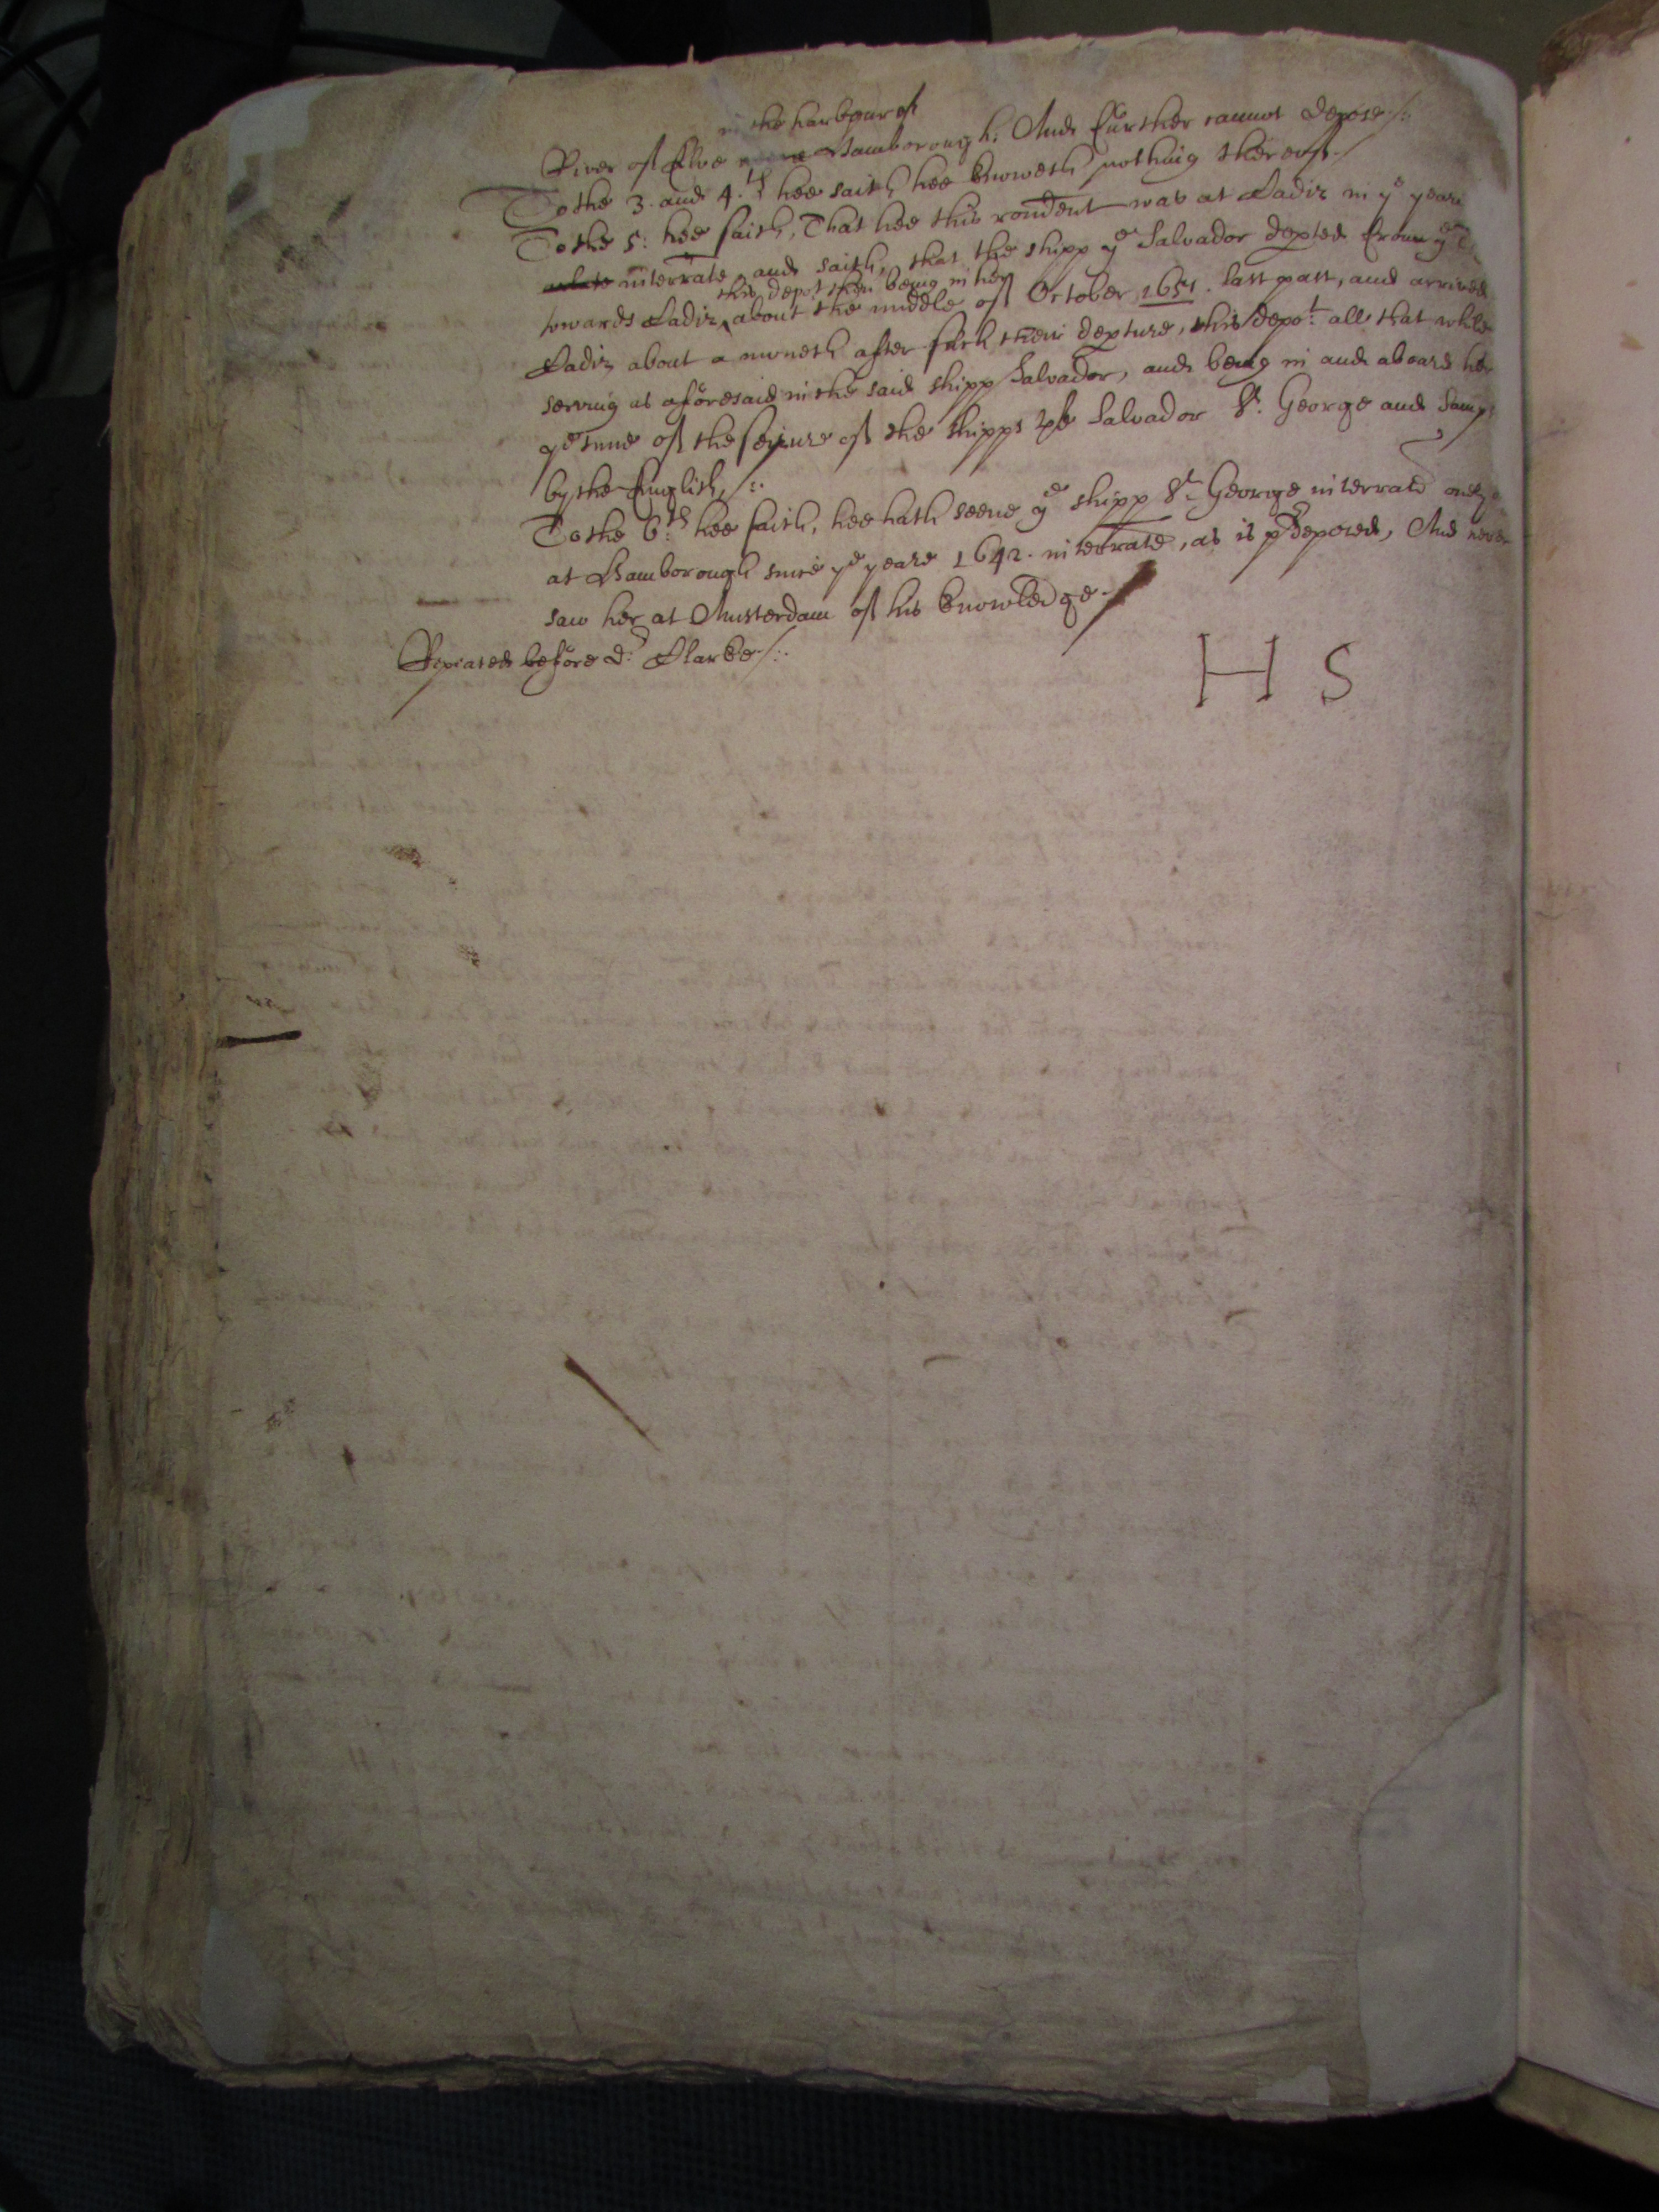 in the harbour of
River of Elve Hamborough: And further cannot depose /:
To the 3. and 4.th hee saith hee knoweth nothing thereof. /
To the 5: hee saith, That hee this rondent was at Cadiz in ye yeare
arlate interrate, and saith, that the shipp ye Salvador depted from ye
this depot then being in her
towards Cadiz, about the middle of October 1651. last past, and arrived
Cadiz about a moneth after such their depture, this depot. all that while
serving as aforesaid in the said shipp Salvador, and being in and aboard her
ye time of the seizure of the shipps ye Salvador St. George and Samp
by the English, /:.
To the 6:th hee saith, hee hath seene ye shipp St. George interrate onely
at Hamborough since ye yeare 1642. interrate, as is pdeposed, And never
saw her at Amsterdam of his knowledge. /
Repeated before Dr: Clarke /:.
H S